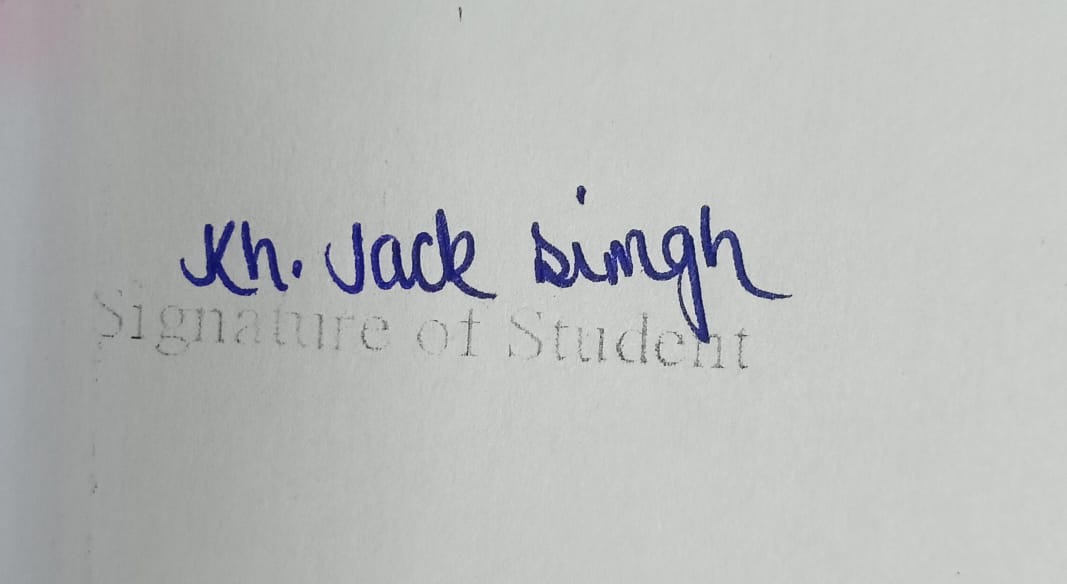 Kh. Jack Singh
Signature of Student